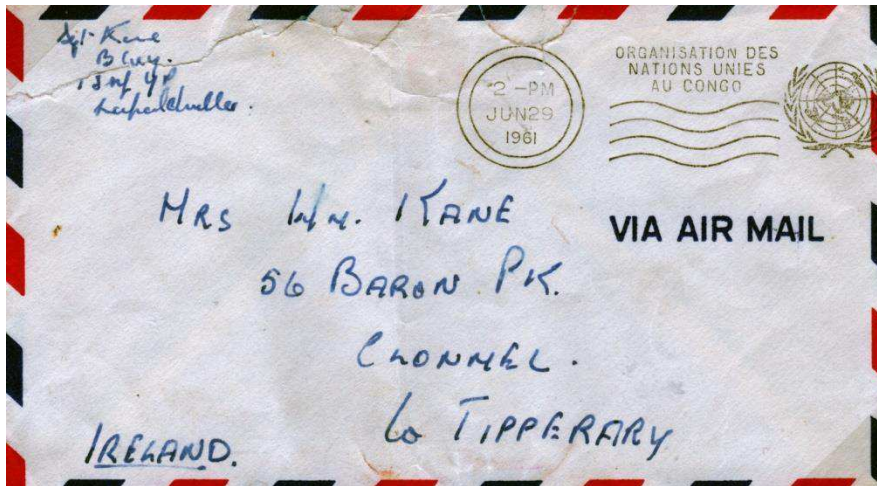 Sgt Kane
B Coy.
1 Inf GP
Leopoldville.
2 -PM
JUN29
1961
ORGANISATION DES
NATIONS UNIES
AU CONGO
MRS WM. KANE
VIA AIR MAIL
56 BARON PK.
CLONMEL.
Co TIPPERARY
IRELAND.